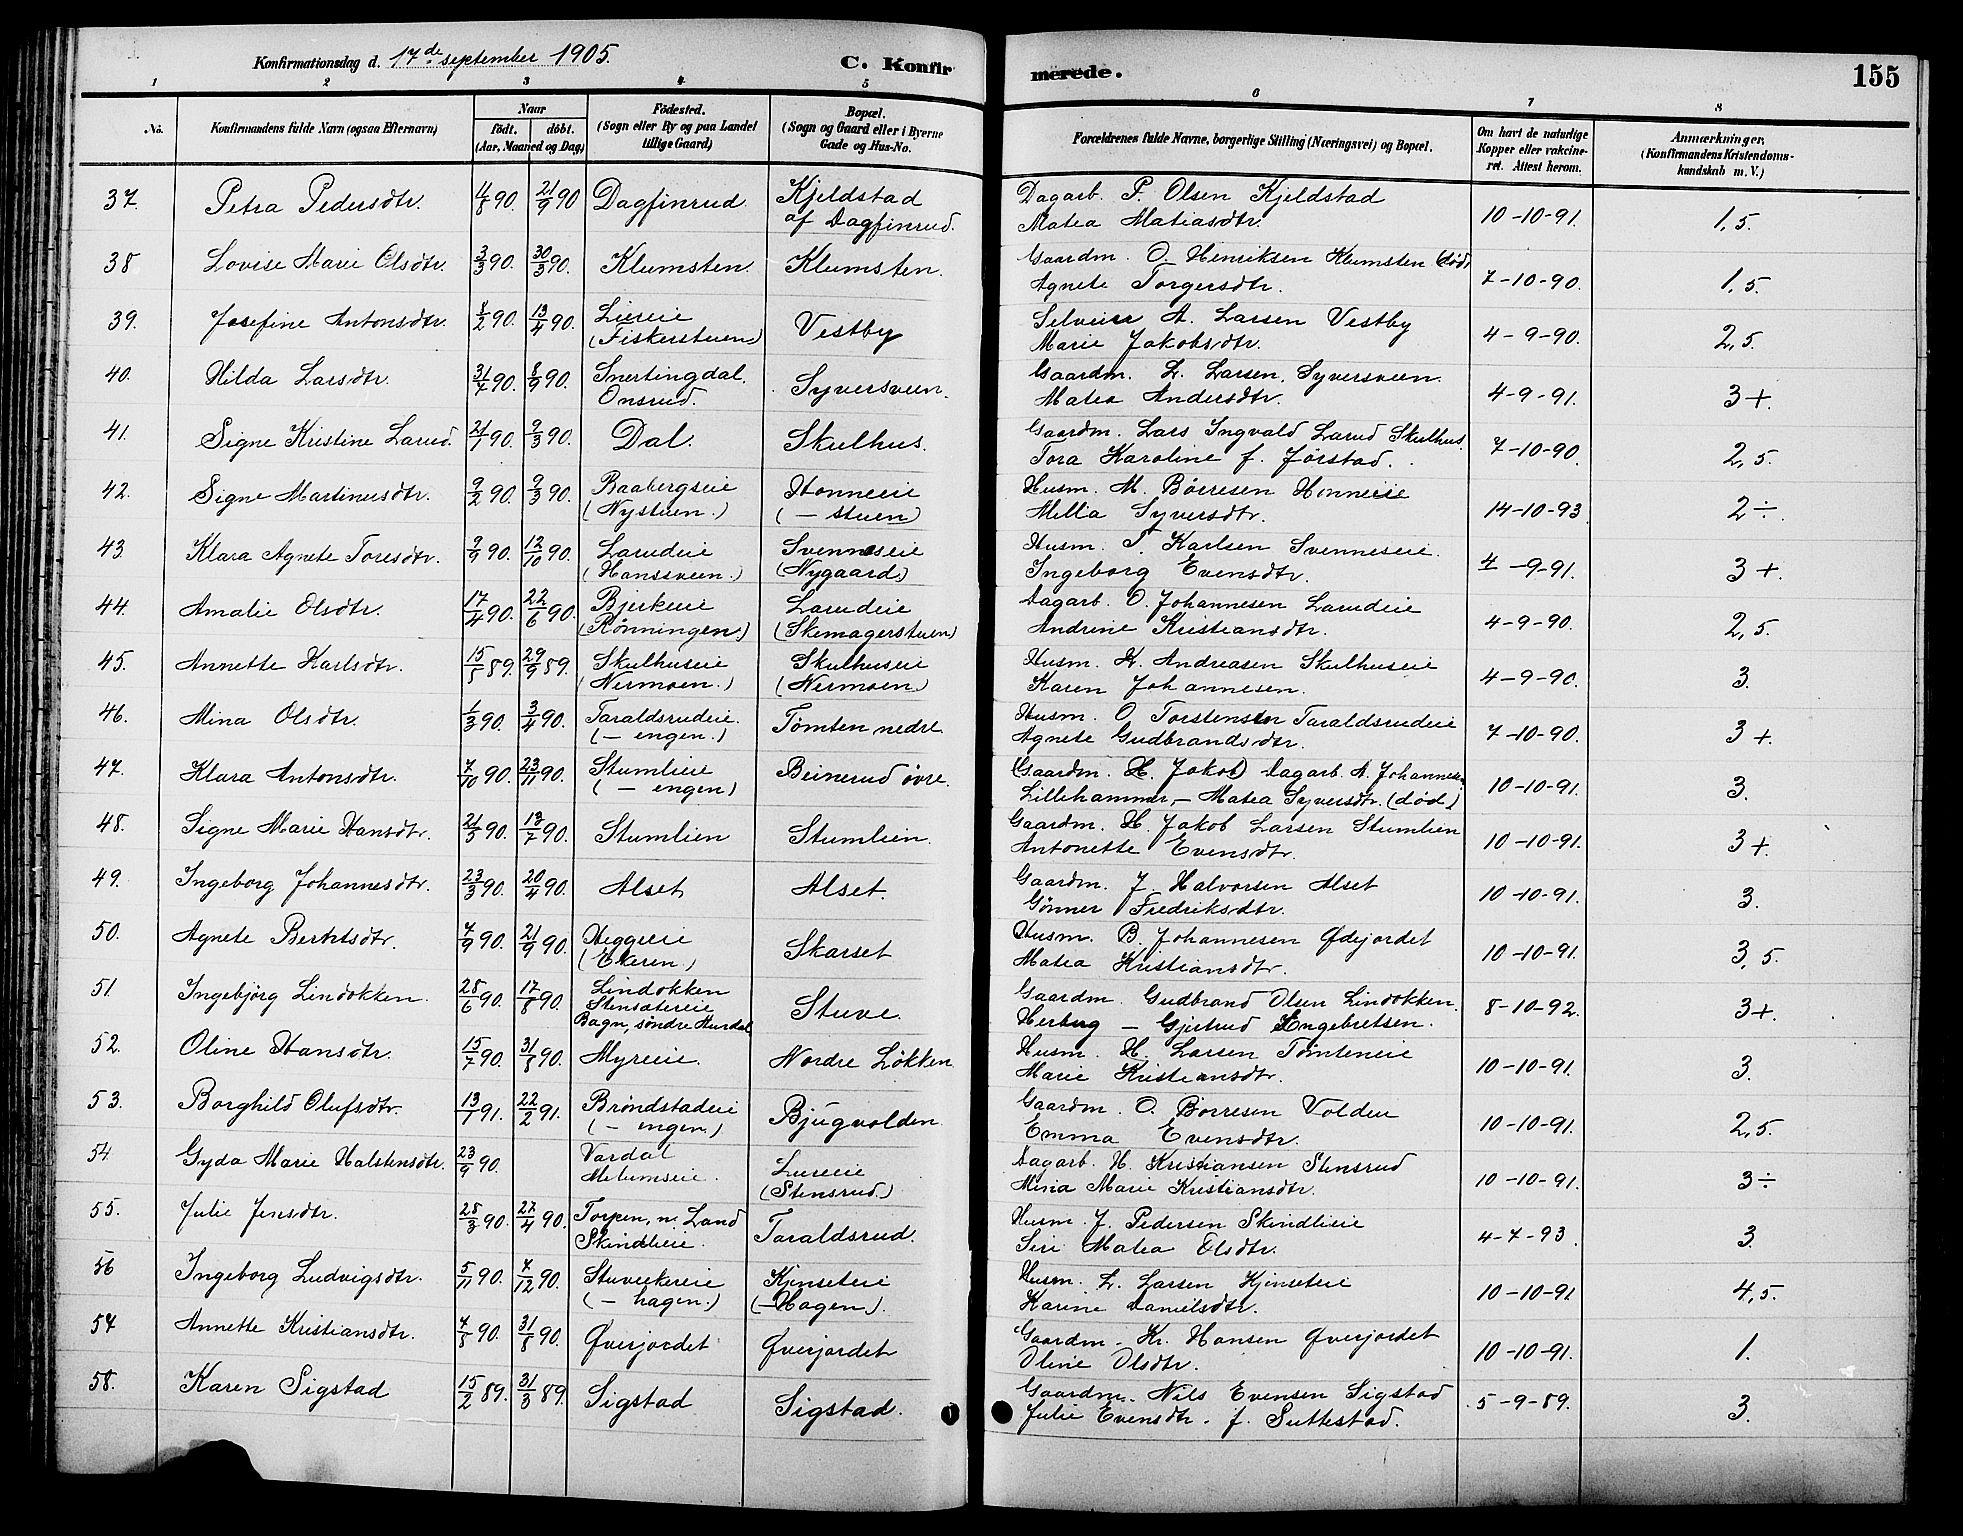 Konfirmationsdag d. 17de september 1905.
C. Konfirmerede.
155
1 2 3 4 5 6 7 8
No.
Konfirmandens fulde Navn (ogsaa Efternavn)
Naar
födt. döbt.
(Aar, Maaned og Dag)
Födested.
(Sogn eller By og paa Landet tillige Gaard)
Bopæl.
(Sogn og Gaard eller i Byerne Gade og Hus-No.
Forældrenes fulde Navne, borgerlige Stilling (Næringsvei) og Bopæl.
Om havt de naturlige Kopper eller vakcineret. Attest herom.
Anmærkninger,
(Konfirmandens Kristendomskundskab m. V.)
37. Petra Pedersdtr. 4/8 90. 21/9 90 Dagfinrud Kjeldstad af Dagfinrud. Dagarb. P. Olsen Kjeldstad
Matea Matiasdtr. 10-10-91. 1,5.
38 Lovise Marie Olsdtr. 3/3 90. 30/3 90. Klumsten. Klumsten. Gaardm. O. Henriksen Klumsten (död)
Agnete Torgersdtr. 7-10-90. 1,5.
39. Josefine Antonsdtr. 8/2 90. 13/4 90. Liereie (Fiskerstuen) Vestby Selveier A. Larsen Vestby
Marie Jakobsdtr. 4-9-90. 2,5.
40. Hilda Larsdtr. 31/7 90. 8/9 90. Snertingdal, Onsrud. Syversveen. Gaardm. L. Larsen, Syversveen.
Matea Andersdtr. 4-9-91. 3+.
41. Signe Kristine Larud. 21/1 90. 9/3 90. Dal. Skulhus. Gaardm. Lars Ingvald Larud Skulhus.
Tora Karoline f. Jørstad. 7-10-90. 2,5.
42. Signe Martinusdtr. 9/2 90. 9/3 90. Baabergseie (Nystuen.) Honneeie (– stuen) Husm. M. Börresen Honneeie
Mellia Syversdtr. 14-10-93 2÷.
43. Klara Agnete Toresdtr. 9/9 90. 12/10 90. Larudeie (Hanssveen.) Svenneseie (Nygaard.) Husm. T. Karlsen Svenneseie.
Ingeborg Evensdtr. 4-9-91. 3+.
44. Amalie Olsdtr. 17/4 90. 22/6 90. Bjerkeeie (Rønningen.) Larudeie (Skomagerstuen) Dagarb. O. Johannesen Larudeie
Andrine Kristiansdtr. 4-9-90. 2,5.
45. Annette Karlsdtr. 15/8 89. 29/9 89. Skulhuseie (Nermoen.) Skulhuseie (Nermoen.) Husm. K. Andreasen Skulhuseie
Karen Johannesen. 4-9-90. 3.
46. Mina Olsdtr. 1/3 90. 3/4 90. Taraldsrudeie. (– engen.) Tømten nedre Husm. O. Torstensen Taraldsrudeie
Agnete Gudbrandsdtr. 7-10-90. 3+.
47. Klara Antonsdtr. 7/10 90. 23/11 90. Stumlieie (– engen) Beinerud övre. (Gaardm. H. Jakob) Dagarb. A. Johannesen
Lillehammer, – Matea Syversdtr. (död.) 10-10-91. 3.
48. Signe Marie Hansdtr. 21/3 90. 13/7 90. Stumlien Stumlien. Gaardm. H. Jakob Larsen Stumlien
Antonette Evensdtr. 10-10-91. 3+.
49. Ingeborg Johannesdtr. 23/3 90. 20/4 90. Alset Alset. Gaardm. J. Halvorsen Alset
Gønner Fredriksdtr. 10-10-91. 3.
50. Agnete Berntsdtr. 7/9 90. 21/9 90. Heggeeie (Ekeren.) Skarset Husm. B. Johannesen Ødejordet
Matea Kristiansdtr. 10-10-91. 3,5.
51. Ingebjörg Lindökken. 28/6 90. 17/8 90. Lindokken Stensætereie Bagn, søndre Hurdal Stuve. Gaardm. Gudbrand Olsen Lindokken.
– Gjertrud Engebretsen. 8-10-92. 3+.
52. Oline Hansdtr. 15/7 90. 31/8 90. Myreeie. Nordre Løkken Husm. H. Larsen Tömteneie
Marie Kristiansdtr. 10-10-91. 3.
53. Borghild Olufsdtr. 13/1 91. 22/2 91. Bröndstadeie (– engen.) Bjugvolden. Gaardm. O. Borresen Volden
Emma Evensdtr. 10-10-91. 2,5.
54. Gyda Marie Halstensdtr. 23/9 90. Vardal Melumseie. (Stensrud.) Dagarb. H. Kristiansen Stensrud
Mina Marie Kristiansdtr. 10-10-91. 3÷
55. Julie Jensdtr. 28/3 90. 27/4 90. Torpen, n. Land Skindlieie. Taraldsrud. Husm. J. Pedersen Skindlieie
Siri Matea Olsdtr. 4-7-93. 3.
56 Ingeborg Ludvigsdtr. 5/11 90. 7/12 90. (– hagen.) Kjinseteie (– Hagen). Husm. L. Larsen Kjinseteie
Karine Danielsdtr. 10-10-91 4,5.
57 Annette Kristiansdtr. 7/8 90. 31/8 90. Øverjordet Øverjordet Gaardm. Kr. Hansen Øverjordet
Oline Olsdtr. 10-10-91. 1.
58. Karen Sigstad 15/2 89. 31/3 89. Sigstad Sigstad. Gaardm. Nils Evensen Sigstad
Julie Evensdtr. f. Suttestad. 5-9-89. 3.